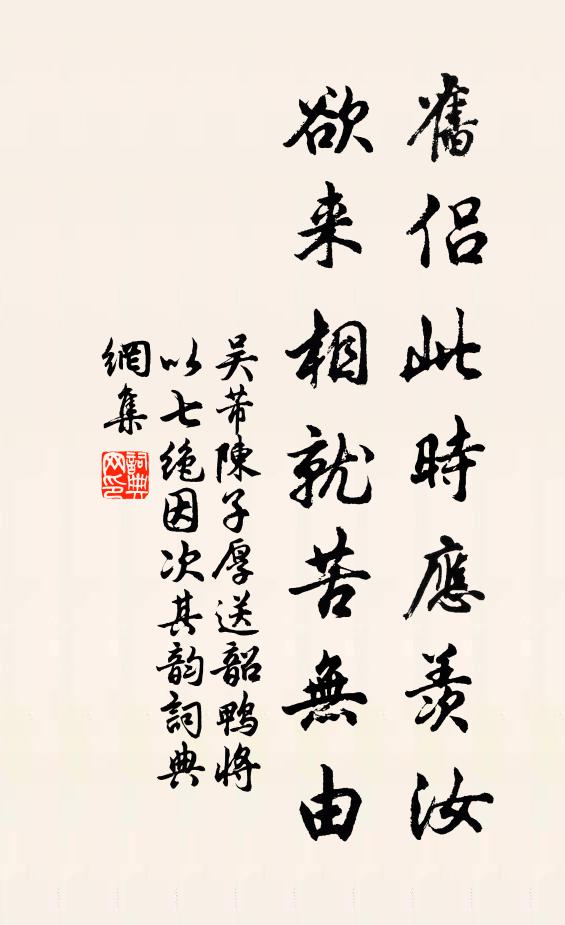 舊侣此時應羨汝
欲来相就苦無由
吴芾陳子厚送韶鴨將
以七绝因次其韵詞典
網集
詞典
网印